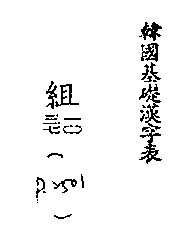 韓國基礎漢字表
組
(P.2501)